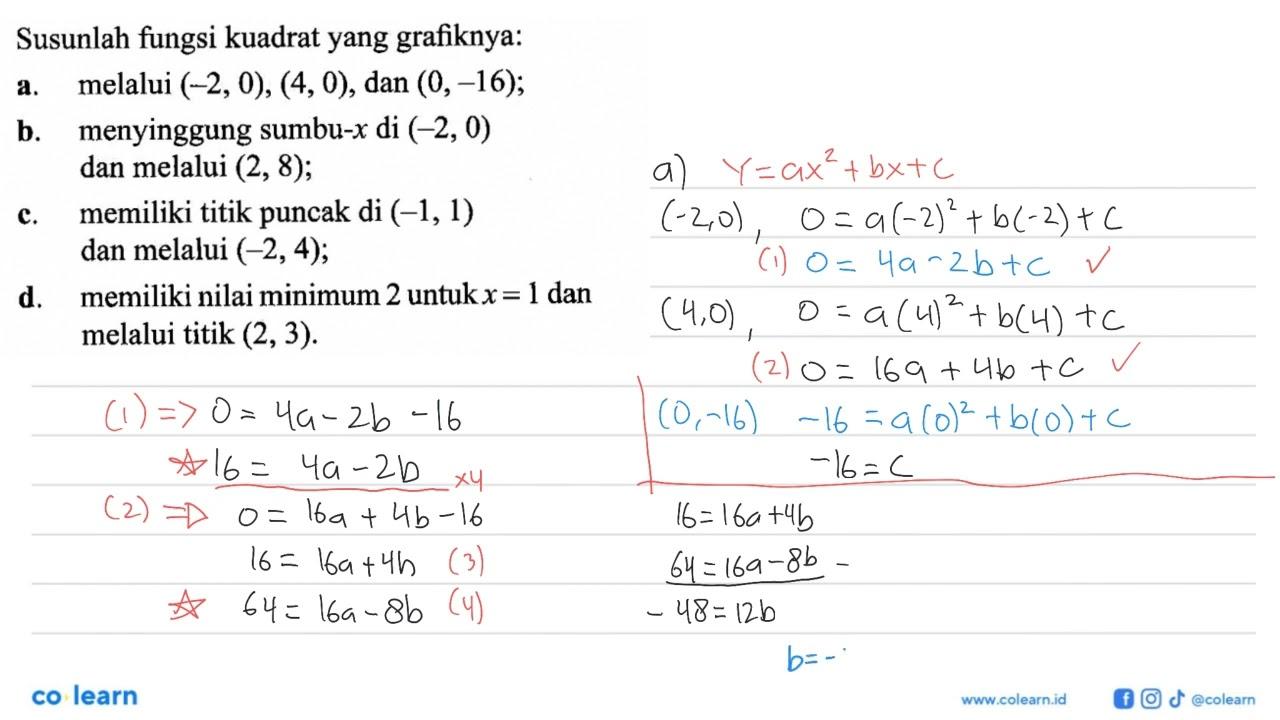 Susunlah fungsi kuadrat yang grafiknya:
a. melalui (–2, 0), (4, 0), dan (0, –16);
b. menyinggung sumbu-x di (–2, 0)
dan melalui (2, 8);
c. memiliki titik puncak di (–1, 1)
dan melalui (–2, 4);
d. memiliki nilai minimum 2 untuk x = 1 dan
melalui titik (2, 3).
a) Y = ax² + bx + c
(-2,0), 0 = a(-2)² + b(-2) + c
(1) 0 = 4a - 2b + c ✓
(4,0), 0 = a(4)² + b(4) + c
(2) 0 = 16a + 4b + c ✓
(0,-16) -16 = a(0)² + b(0) + c
-16 = c
(1) => 0 = 4a - 2b - 16
☆ 16 = 4a - 2b x4
(2) => 0 = 16a + 4b - 16
16 = 16a + 4b (3)
☆ 64 = 16a - 8b (4)
16 = 16a + 4b
64 = 16a - 8b -
- 48 = 12b
b = -
co learn
www.colearn.id
@colearn